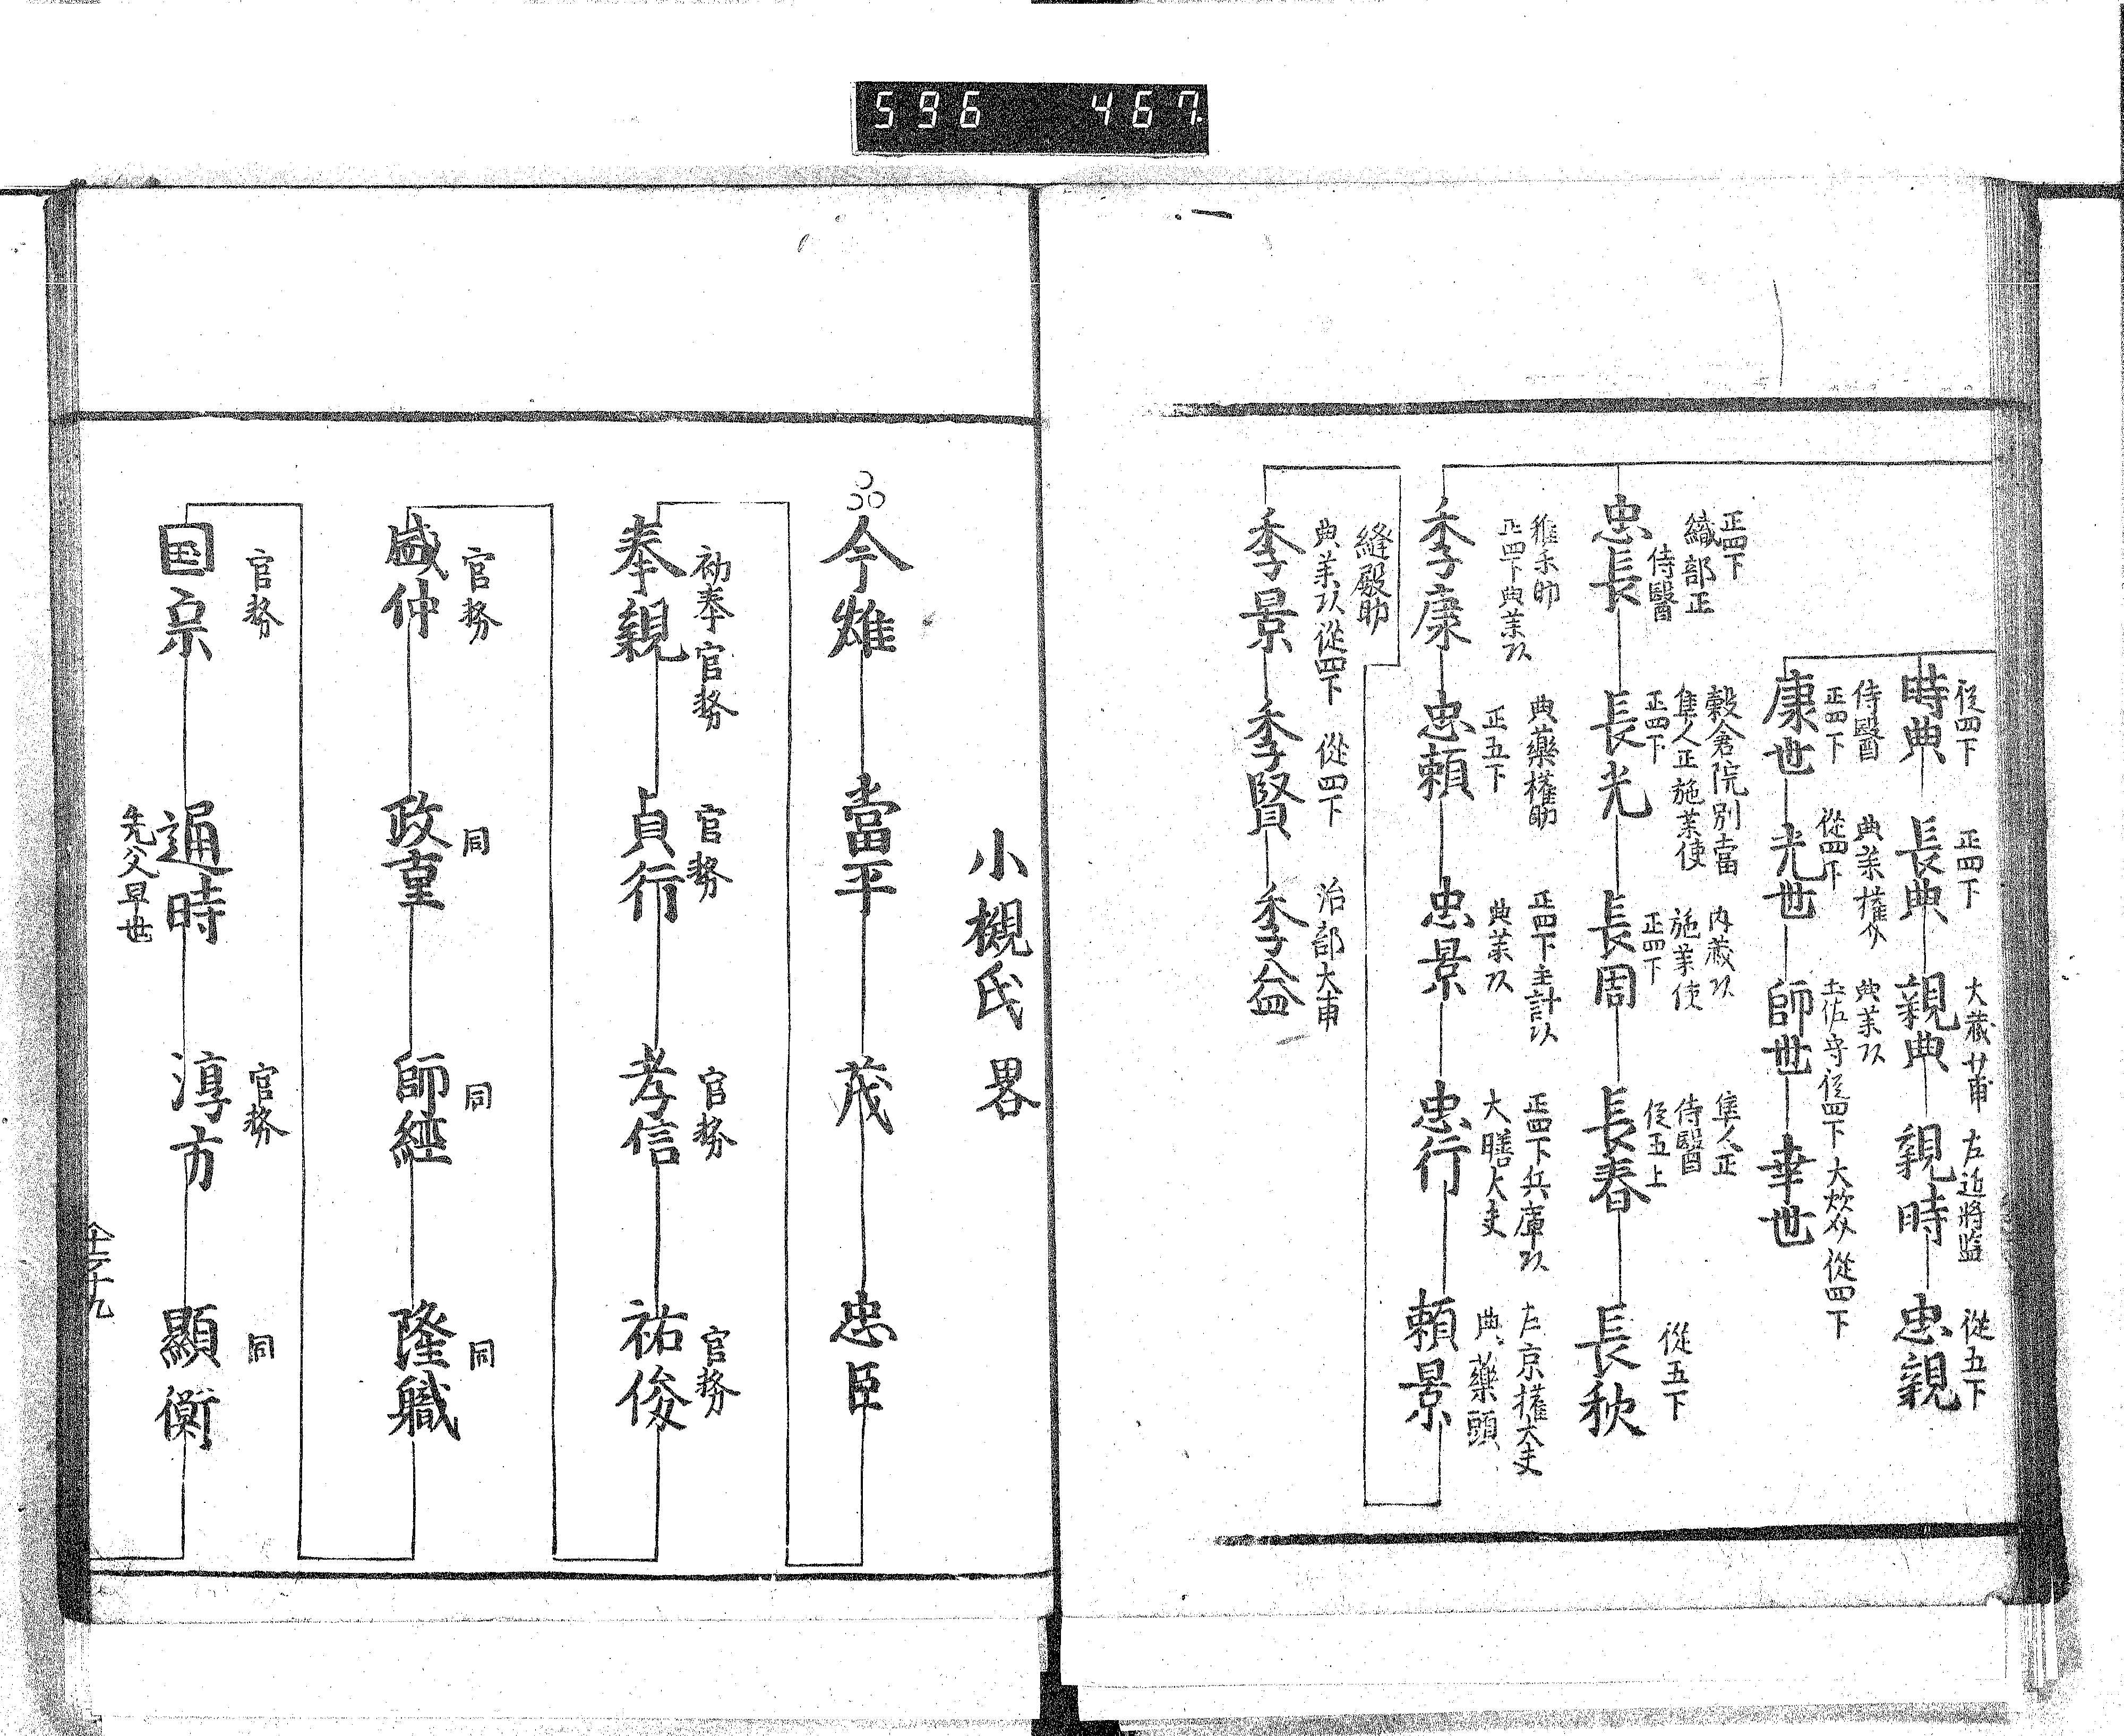 596 467
従四下 正四下 大蔵少甫 左近將監 従五下
時典 長典 親典 親時 忠親
侍醫 典薬権介 典薬頭
正四下 從四下 土佐守 従四下 大炊介 從四下
康世 光世 師世 幸世
正四下 穀倉院別當 内蔵頭 隼人正
織部正 隼人正 施薬使 施薬使 侍醫 從五下
侍醫 正四下 正四下 従五上
忠長 長光 長周 長春 長秋
雅楽助 典藥權助 正四下主計頭 正四下兵庫頭 左京權大夫
正四下典薬頭 正五下 典薬頭 大膳大夫 典藥頭
季康 忠頼 忠景 忠行 頼景
縫殿助
典薬頭 從四下 從四下 治部大甫
季景 季賢 季益
小槻氏 畧
今雄 當平 茂 忠臣
初奉官務 官務 官務 官務
奉親 貞行 孝信 祐俊
官務 同 同 同
盛仲 政重 師経 隆職
官務 官務 同
国宗 通時 淳方 顯衡
先父早世